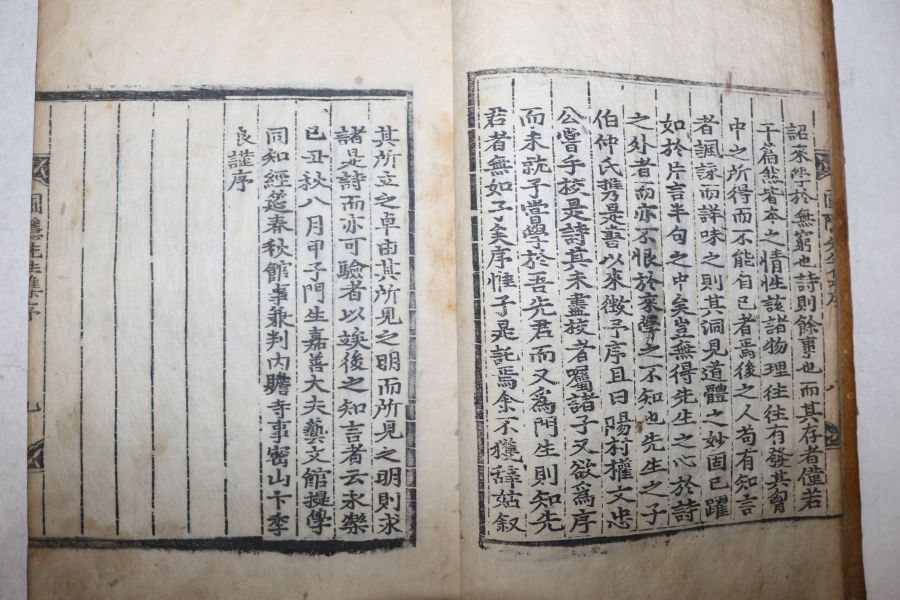 圃隱先生集序 八
詔來學於無窮也詩則餘事也而其存者僅若
干篇然皆本之情性該諸物理往往有發其胷
中之所得而不能自已者焉後之人苟有知言
者諷詠而詳味之則其洞見道體之妙固已躍
如於片言半句之中矣豈無得先生之心於詩
之外者而亦不恨於來學之不知也先生之子
伯仲氏携是書以來徵予序且曰陽村權文忠
公嘗手校是詩其未盡校者囑諸子又欲爲序
而未就子嘗學於吾先君而又爲門生則知先
君者無如子矣序惟子是託焉余不獲辭姑叙
其所立之卓由其所見之明而所見之明則求
諸是詩而亦可驗者以竢後之知言者云永樂
已丑秋八月甲子門生嘉善大夫藝文館提學
同知經筵春秋館事兼判內贍寺事密山卞季
良謹序
圃隱先生集序 九